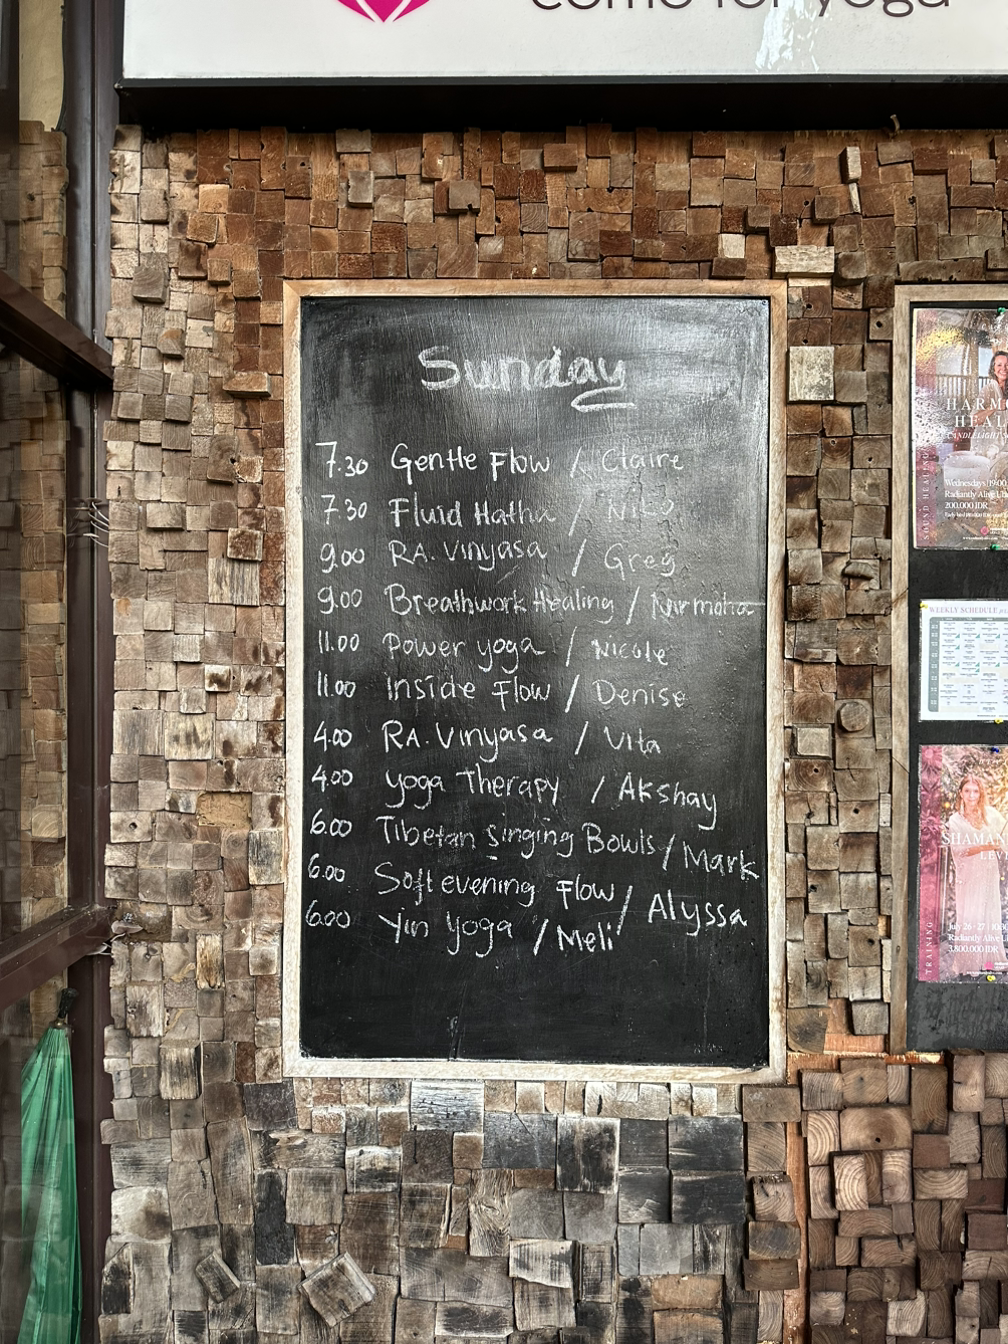 come for yoga
Sunday
7.30 Gentle Flow / Claire
7.30 Fluid Hatha / Niko
9.00 RA. Vinyasa / Greg
9.00 Breathwork Healing / Nirmoha
11.00 Power yoga / Nicole
11.00 Inside Flow / Denise
4.00 RA. Vinyasa / Vita
4.00 yoga Therapy / Akshay
6.00 Tibetan Singing Bowls / Mark
6.00 Soft evening Flow / Alyssa
6.00 Yin yoga / Meli
HARMO
HEAL
CANDLELIGHT
SOUND HEALING
Wednesdays | 19:00
Radiantly Alive
200.000 IDR
WEEKLY SCHEDULE
SHAMAN
LEV
TRAINING
July 26 - 27 | 10:30
Radiantly Alive
3.800.000 IDR